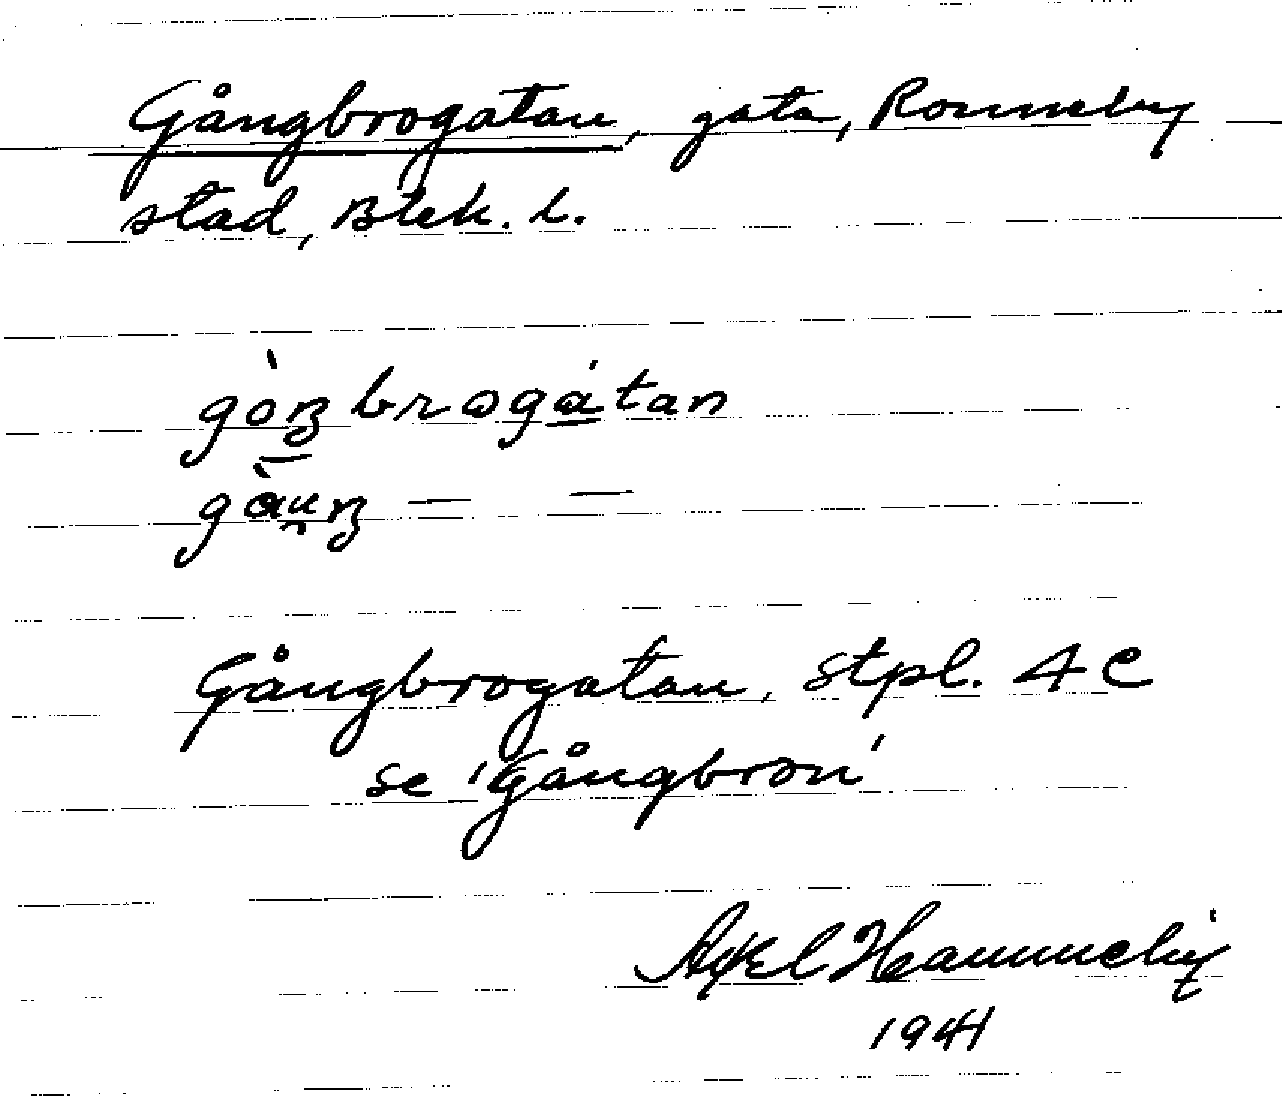 Gångbrogatan, gata, Ronneby
stad, Blek. l.
gòŋbrogátan
gàu̯ŋ — —
Gångbrogatan, stpl. 4 C
se 'Gångbron'
Axel
1941